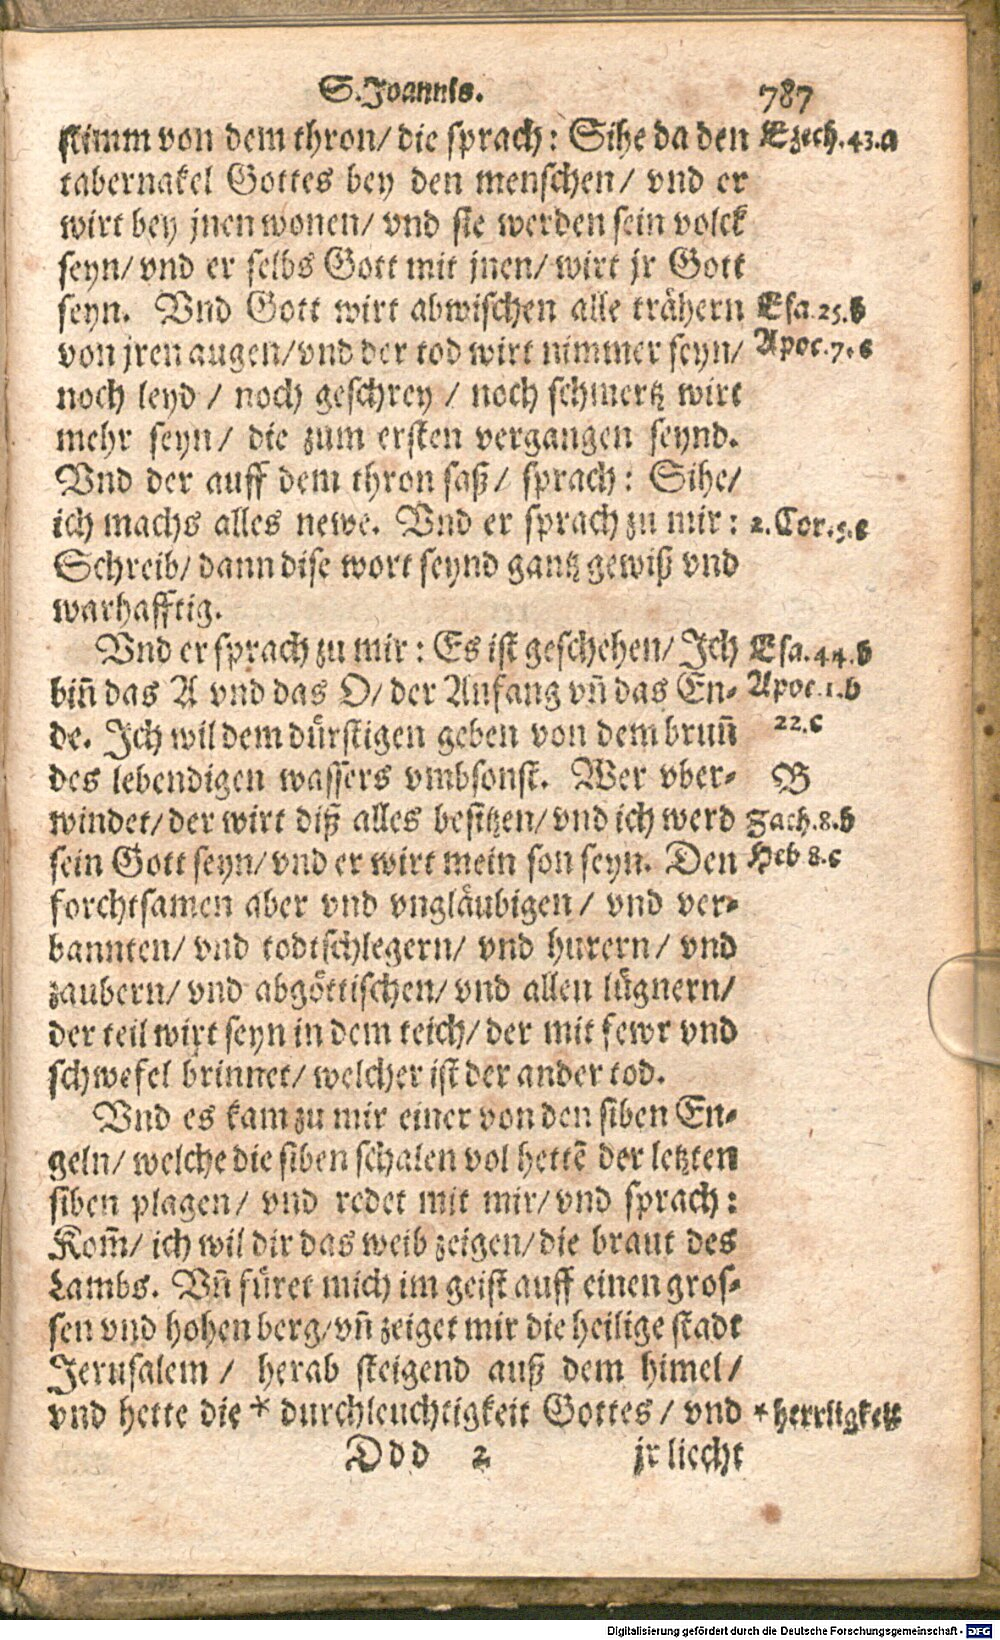 S. Joannis. 787
stimm von dem thron/ die sprach: Sihe da den Ezech.43.a
tabernakel Gottes bey den menschen/ vnd er
wirt bey jnen wonen/ vnd sie werden sein volck
seyn/ vnd er selbs Gott mit jnen/ wirt jr Gott
seyn. Vnd Gott wirt abwischen alle trähern Esa.25.b
von jren augen/ vnd der tod wirt nimmer seyn/ Apoc.7.c
noch leyd / noch geschrey / noch schmertz wirt
mehr seyn/ die zum ersten vergangen seynd.
Vnd der auff dem thron saß/ sprach: Sihe/
ich machs alles newe. Vnd er sprach zu mir: 2.Cor.5.c
Schreib/ dann dise wort seynd gantz gewiß vnd
warhafftig.
Vnd er sprach zu mir: Es ist geschehen/ Ich Esa.44.b
biñ das A vnd das O/ der Anfang vñ das En- Apoc.1.b
de. Ich wil dem dürstigen geben von dem bruñ 22.c
des lebendigen wassers vmbsonst. Wer vber- B
windet/ der wirt diß alles besitzen/ vnd ich werd Zach.8.b
sein Gott seyn/ vnd er wirt mein son seyn. Den Heb 8.c
forchtsamen aber vnd vngläubigen/ vnd ver-
bannten/ vnd todtschlegern/ vnd hurern/ vnd
zaubern/ vnd abgöttischen/ vnd allen lügnern/
der teil wirt seyn in dem teich/ der mit fewr vnd
schwefel brinnet/ welcher ist der ander tod.
Vnd es kam zu mir einer von den siben En-
geln/ welche die siben schalen vol hettẽ der letzten
siben plagen/ vnd redet mit mir/ vnd sprach:
Kom̃/ ich wil dir das weib zeigen/ die braut des
Lambs. Vñ füret mich im geist auff einen gros-
sen vnd hohen berg/ vñ zeiget mir die heilige stadt
Jerusalem / herab steigend auß dem himel/
vnd hette die * durchleuchtigkeit Gottes / vnd * herrligkeit
Ddd 2 jr liecht
Digitalisierung gefördert durch die Deutsche Forschungsgemeinschaft - DFG